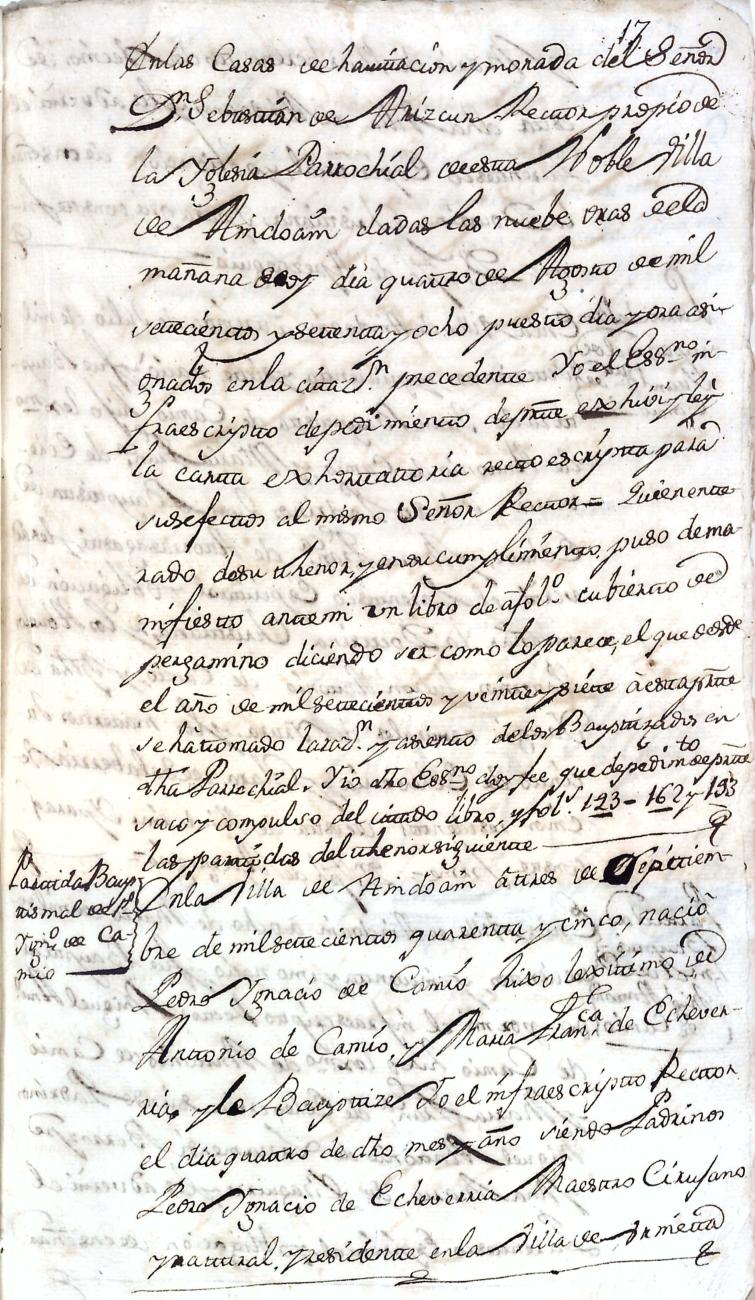 17
En las Casas de havitacion y morada del Señor
Dn. Sebastian de Arizcun Rector propio de
la Yglesia Parrochial de esta Noble Villa
de Andoain dadas las nuebe oras de la
mañana de oy dia quatro de Agosto de mil
setecientos y setenta y ocho puesto dia y ora asi-
gnados en la citazn. precedente Yo el Essno. in-
fraescripto de pedimiento de parte exhivi y ley
la carta exhortatoria recto escripta para
sus efectos al mismo Señor Rector = Quien ente-
rado de su thenor, y en su cumplimiento, puso de ma-
nifiesto ante mi un libro de a folo. cubierto de
pergamino diciendo ser como lo parece, el que desde
el año de mil setecientos y veinte y siete à esta pnte
se hà tomado la razn. y asiento de los Bauptizados en
dha Parrochial. Yo dho Essno. doy fee que de pedimto de parte
saco y compulso del citado libro, y fols. 123 - 162 y 193
las partidas del thenor siguiente
Partida Baup-
tismal de Po.
Ygno. de Ca-
mio
En la Villa de Andoain à tres de Septiem-
bre de mil setecientos quarenta y cinco, naciò
Pedro Ygnacio de Camio hixo lexitimo de
Antonio de Camio, y Maria Franca. de Echever-
ria, y le Bauptize Yo el infraescripto Rector
el dia quatro de dho mes y año siendo Padrinos
Pedro Ygnacio de Echeverria Maestro Cirujano
y natural, y residente en la Villa de Urnieta